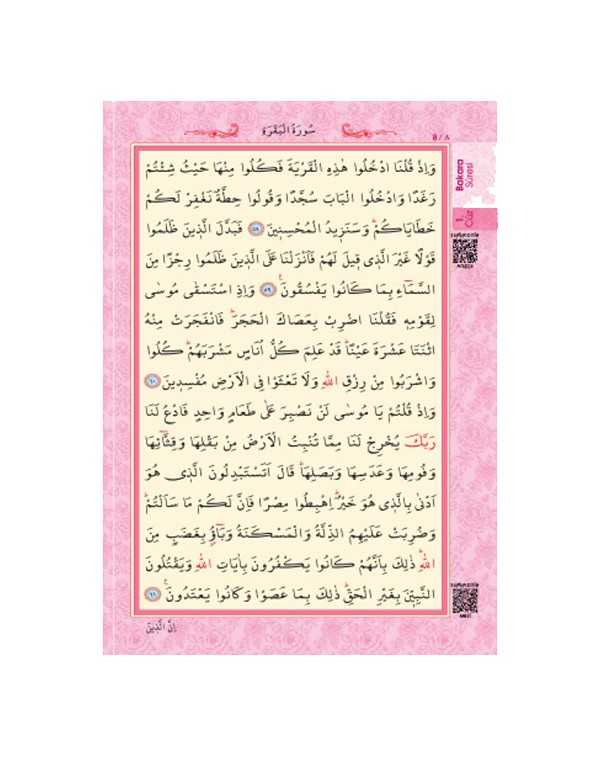 سُورَةُ الْبَقَرَةِ
8 / ٨
وَاِذْ قُلْنَا ادْخُلُوا هٰذِهِ الْقَرْيَةَ فَكُلُوا مِنْهَا حَيْثُ شِئْتُمْ
رَغَدًا وَادْخُلُوا الْبَابَ سُجَّدًا وَقُولُوا حِطَّةٌ نَغْفِرْ لَكُمْ
خَطَايَاكُمْۜ وَسَنَزٖيدُ الْمُحْسِنٖينَ ﴿٥٨﴾ فَبَدَّلَ الَّذٖينَ ظَلَمُوا
قَوْلًا غَيْرَ الَّذٖي قٖيلَ لَهُمْ فَاَنْزَلْنَا عَلَى الَّذٖينَ ظَلَمُوا رِجْزًا مِنَ
السَّمَٓاءِ بِمَا كَانُوا يَفْسُقُونَ۟ ﴿٥٩﴾ وَاِذِ اسْتَسْقٰى مُوسٰى
لِقَوْمِهٖ فَقُلْنَا اضْرِبْ بِعَصَاكَ الْحَجَرَۜ فَانْفَجَرَتْ مِنْهُ
اثْنَتَا عَشْرَةَ عَيْنًاۜ قَدْ عَلِمَ كُلُّ اُنَاسٍ مَشْرَبَهُمْۜ كُلُوا
وَاشْرَبُوا مِنْ رِزْقِ اللّٰهِ وَلَا تَعْثَوْا فِي الْاَرْضِ مُفْسِدٖينَ ﴿٦٠﴾
وَاِذْ قُلْتُمْ يَا مُوسٰى لَنْ نَصْبِرَ عَلٰى طَعَامٍ وَاحِدٍ فَادْعُ لَنَا
رَبَّكَ يُخْرِجْ لَنَا مِمَّا تُنْبِتُ الْاَرْضُ مِنْ بَقْلِهَا وَقِثَّٓائِهَا
وَفُومِهَا وَعَدَسِهَا وَبَصَلِهَاۜ قَالَ اَتَسْتَبْدِلُونَ الَّذٖي هُوَ
اَدْنٰى بِالَّذٖي هُوَ خَيْرٌۜ اِهْبِطُوا مِصْرًا فَاِنَّ لَكُمْ مَا سَاَلْتُمْۜ
وَضُرِبَتْ عَلَيْهِمُ الذِّلَّةُ وَالْمَسْكَنَةُ وَبَٓاؤُ۫ بِغَضَبٍ مِنَ
اللّٰهِۜ ذٰلِكَ بِاَنَّهُمْ كَانُوا يَكْفُرُونَ بِاٰيَاتِ اللّٰهِ وَيَقْتُلُونَ
النَّبِيّٖنَ بِغَيْرِ الْحَقِّۜ ذٰلِكَ بِمَا عَصَوْا وَكَانُوا يَعْتَدُونَ۟ ﴿٦١﴾
اِنَّ الَّذٖينَ
Bakara
Sûresi
1.
Cüz